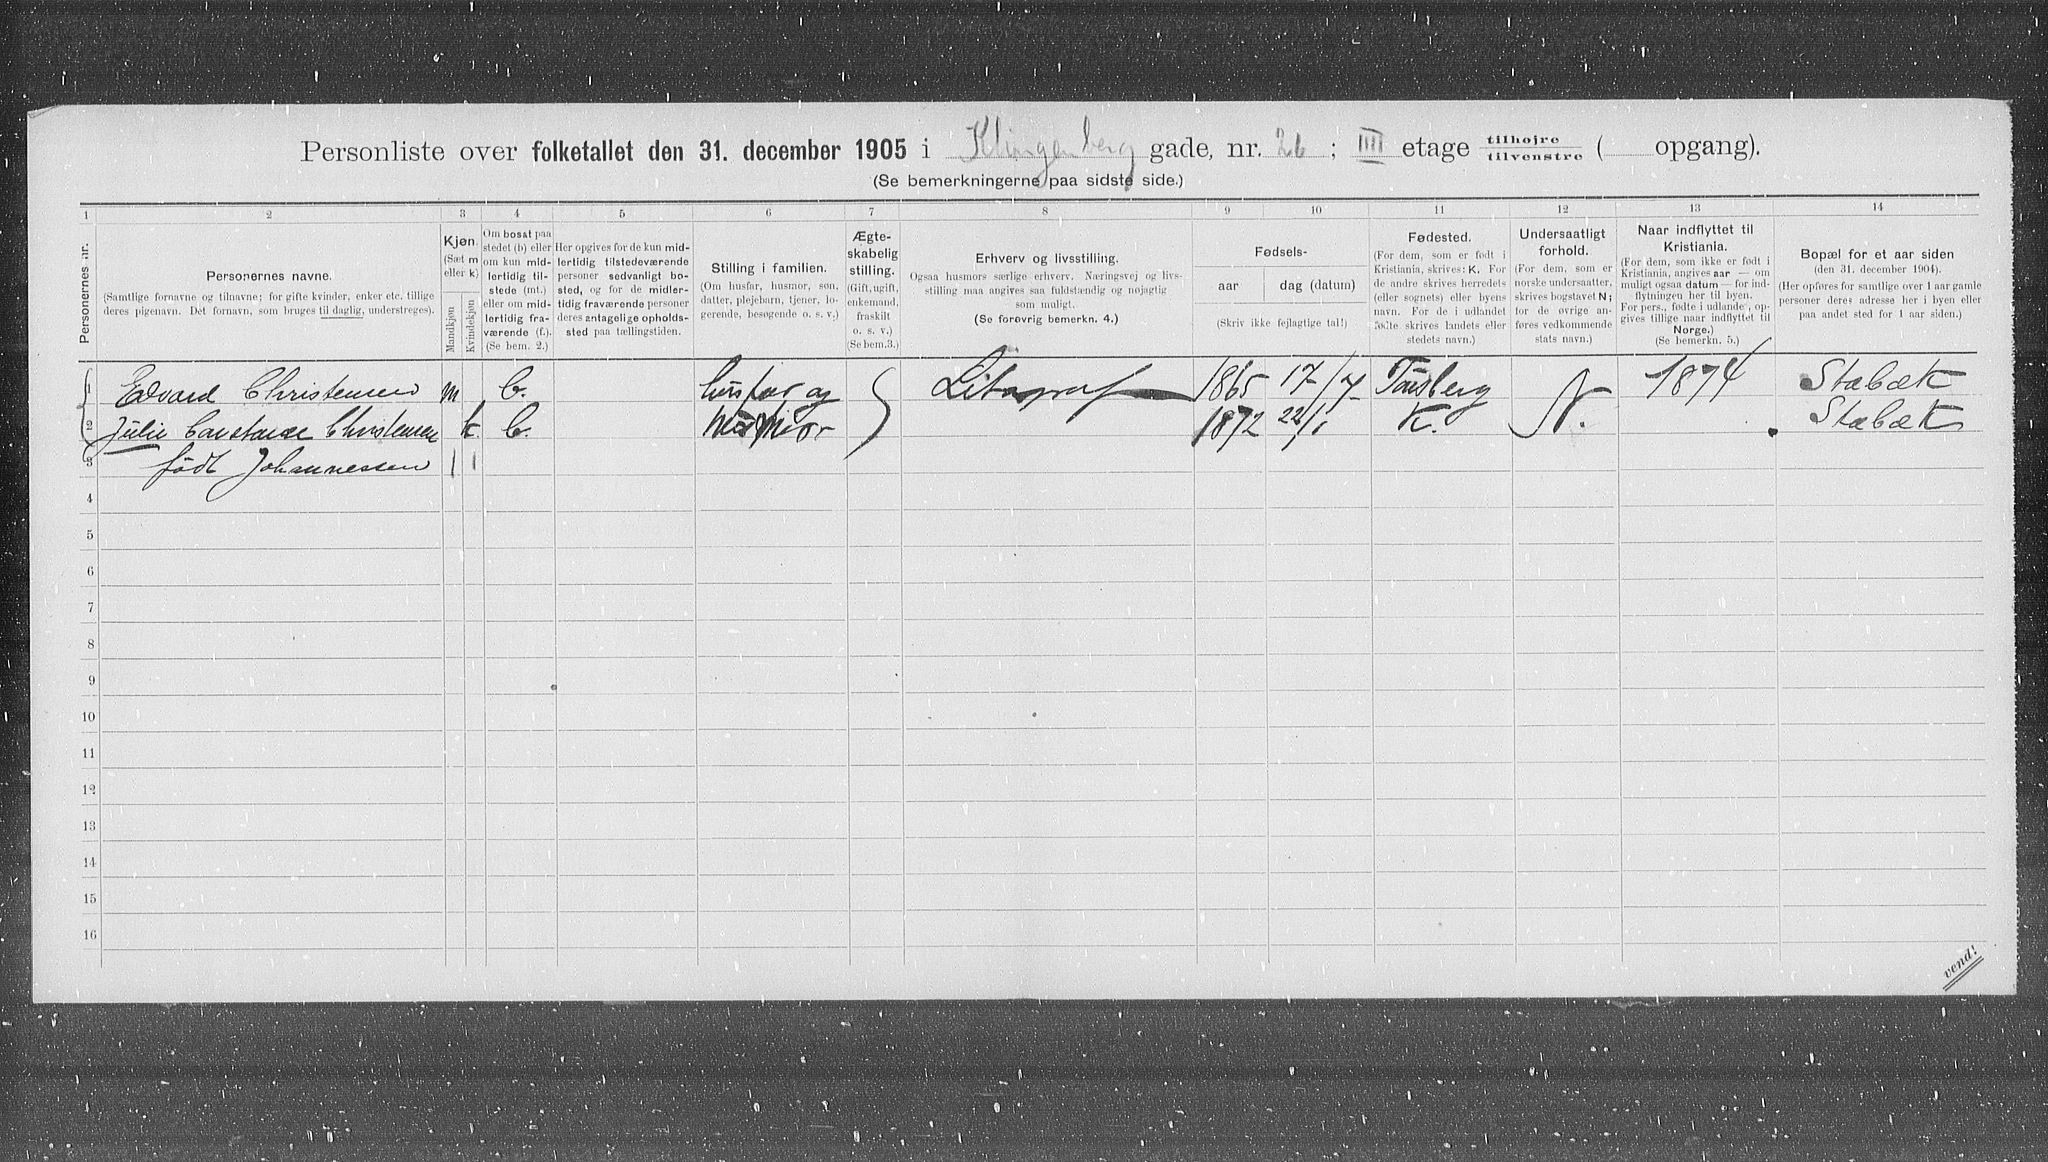 Personliste over folketallet den 31. december 1905 i Klingenberg gade, nr. 26 ; III etage tilhøjre tilvenstre ( opgang).
(Se bemerkningerne paa sidste side.)
1 2 3 4 5 6 7 8 9 10 11 12 13 14
Personernes nr.
Personernes navne.
(Samtlige fornavne og tilnavne; for gifte kvinder, enker etc. tillige
deres pigenavn. Det fornavn, som bruges til daglig, understreges).
Kjøn.
(Sæt m
eller k)
Mandkjøn
Kvindekjøn
Om bosat paa
stedet (b) eller
om kun mid-
lertidig til-
stede (mt.)
eller om mid-
lertidig fra-
værende (f.).
(Se bem. 2.)
Her opgives for de kun mid-
lertidig tilstedeværende
personer sedvanligt bo-
sted, og for de midler-
tidig fraværende personer
deres antagelige opholds-
sted paa tællingstiden.
Stilling i familien.
(Om husfar, husmor, søn,
datter, plejebarn, tjener, lo-
gerende, besøgende o. s. v.)
Ægte-
skabelig
stilling.
(Gift, ugift,
enkemand,
fraskilt
o. s. v.)
(Se bem.3.)
Erhverv og livsstilling.
Ogsaa husmors særlige erhverv. Næringsvej og livs-
stilling maa angives saa fuldstændig og nøjagtig
som muligt.
(Se forøvrig bemerkn. 4.)
Fødsels-
aar
dag (datum)
(Skriv ikke fejlagtige tal!)
Fødested.
(For dem, som er født i
Kristiania, skrives: K. For
de andre skrives herredets
(eller sognets) eller byens
navn. For de i udlandet
fødte skrives landets eller
stedets navn.)
Undersaatligt
forhold.
(For dem, som er
norske undersaatter,
skrives bogstavet N;
for de øvrige an-
føres vedkommende
stats navn.)
Naar indflyttet til
Kristiania.
(For dem, som ikke er født i
Kristiania, angives aar — om
muligt ogsaa datum — for ind-
flytningen her til byen.
For pers., fødte i udlandet, op-
gives tillige naar indflyttet til
Norge.)
(Se bemerkn. 5.)
Bopæl for et aar siden
(den 31. december 1904).
(Her opføres for samtlige over 1 aar gamle
personer deres adresse her i byen eller
paa andet sted for 1 aar siden.)
1 Edvard Christensen m b. husfar og Litograf 1865 17/7 Tønsberg N. 1874 Stabæk
2 Julie Constance Christensen k. b. husmor 1872 22/1 K. Stabæk
3 født Johannessen
4
5
6
7
8
9
10
11
12
13
14
15
16
vend!